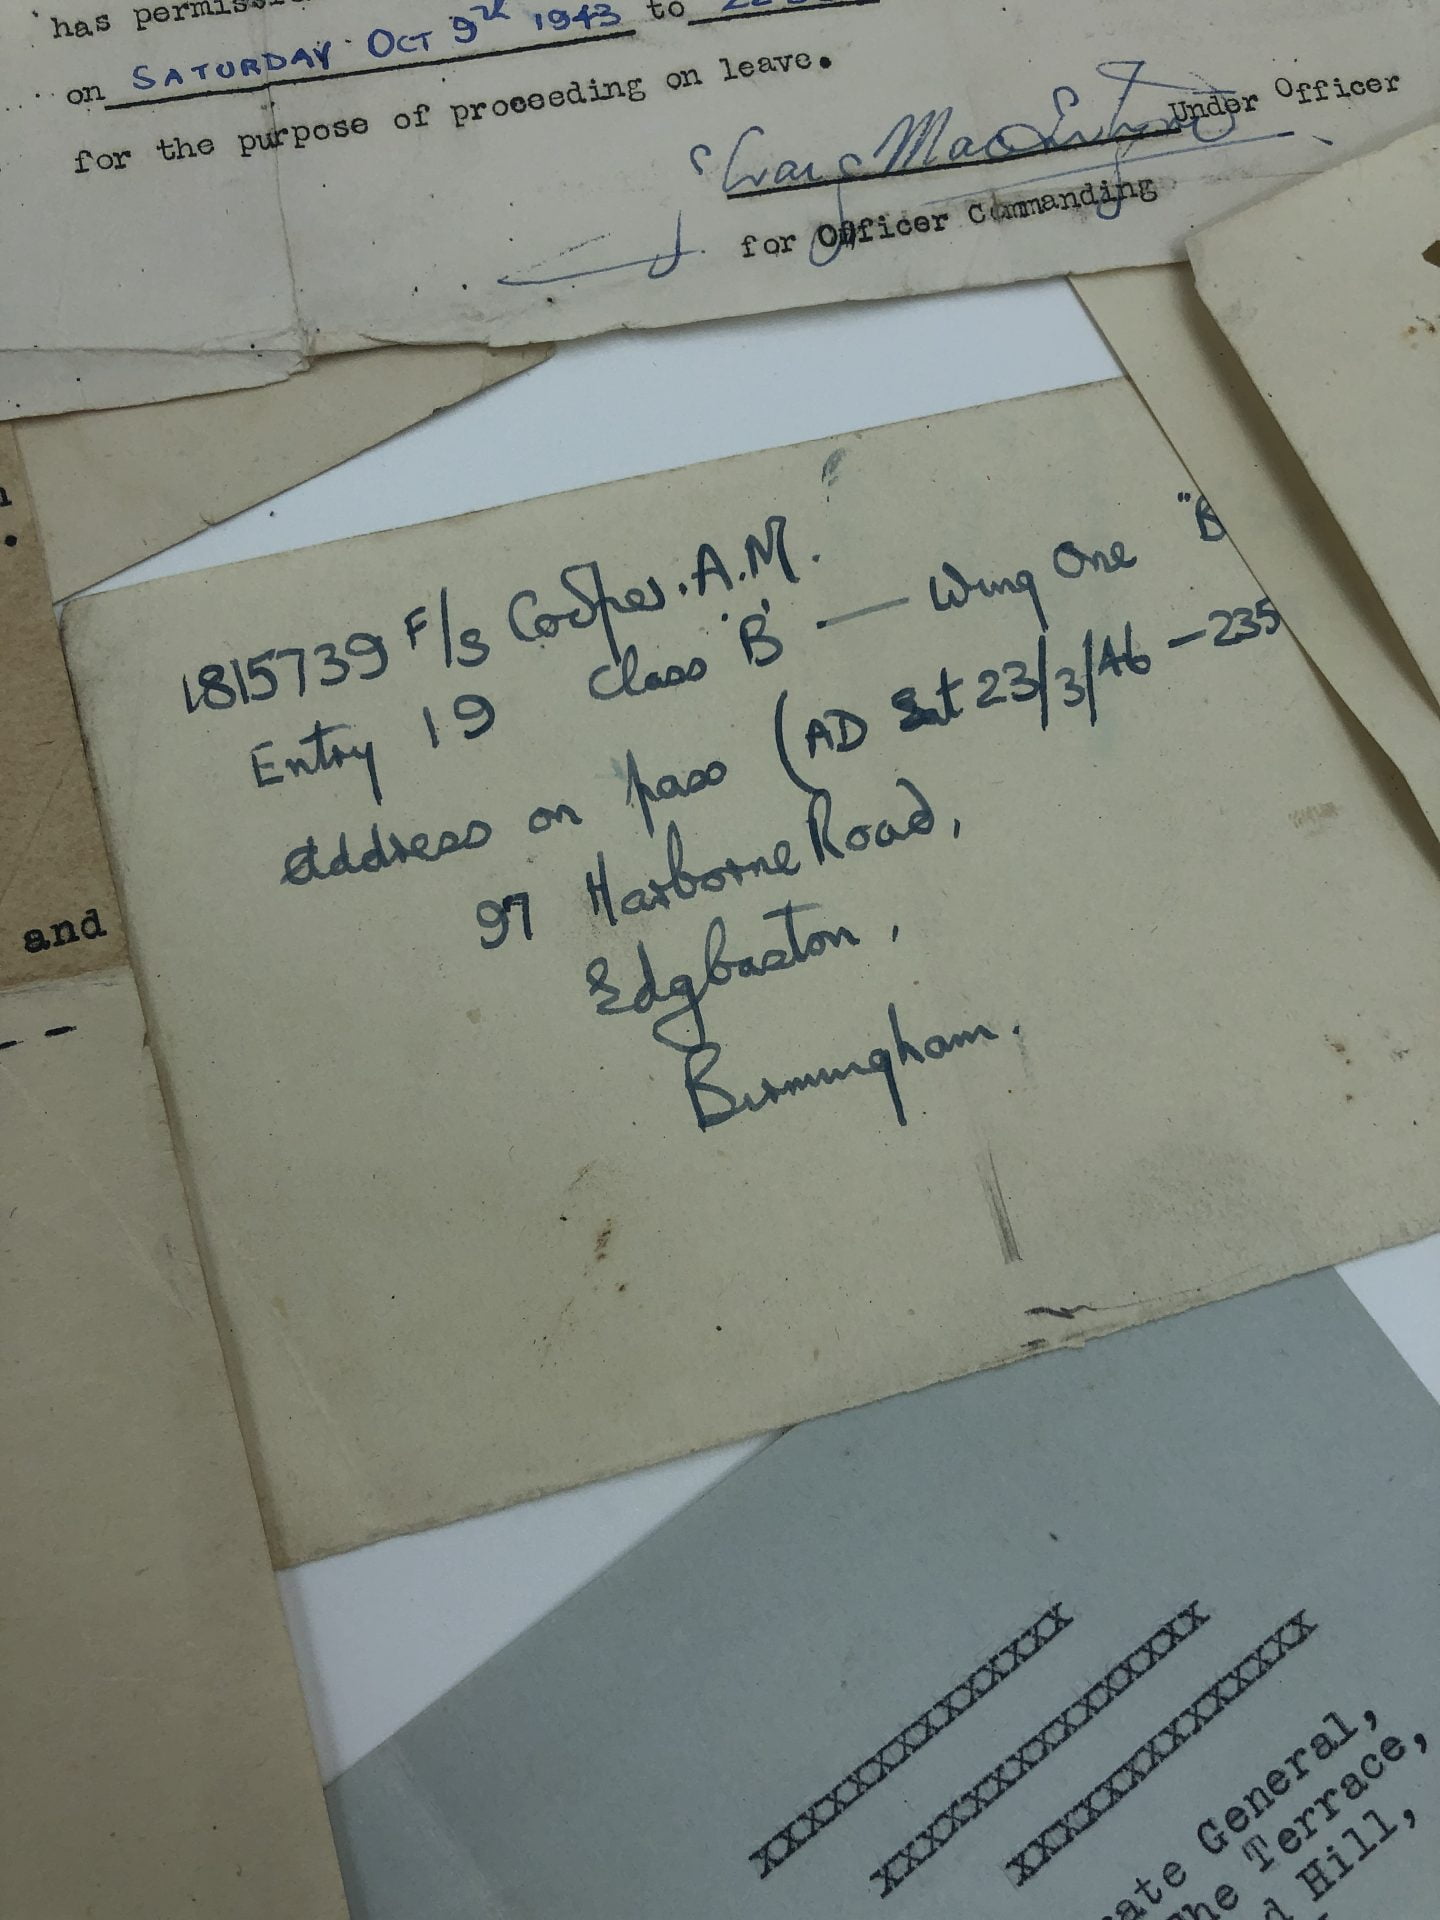 has permissi
on SATURDAY OCT 9th 1943 to
for the purpose of proceeding on leave.
Under Officer
for Officer Commanding
1815739 F/S Cooper. A.M.
Entry 19 Class 'B' — Wing One "B
Address on pass (AD Sat 23/3/46 - 235
97 Harborne Road,
Edgbaston,
Birmingham.
and
--
XXXXXXXXXXXXXXX
XXXXXXXXXXXXXXX
XXXXXXXXXXXXXX
ate General,
he Terrace,
d Hill,